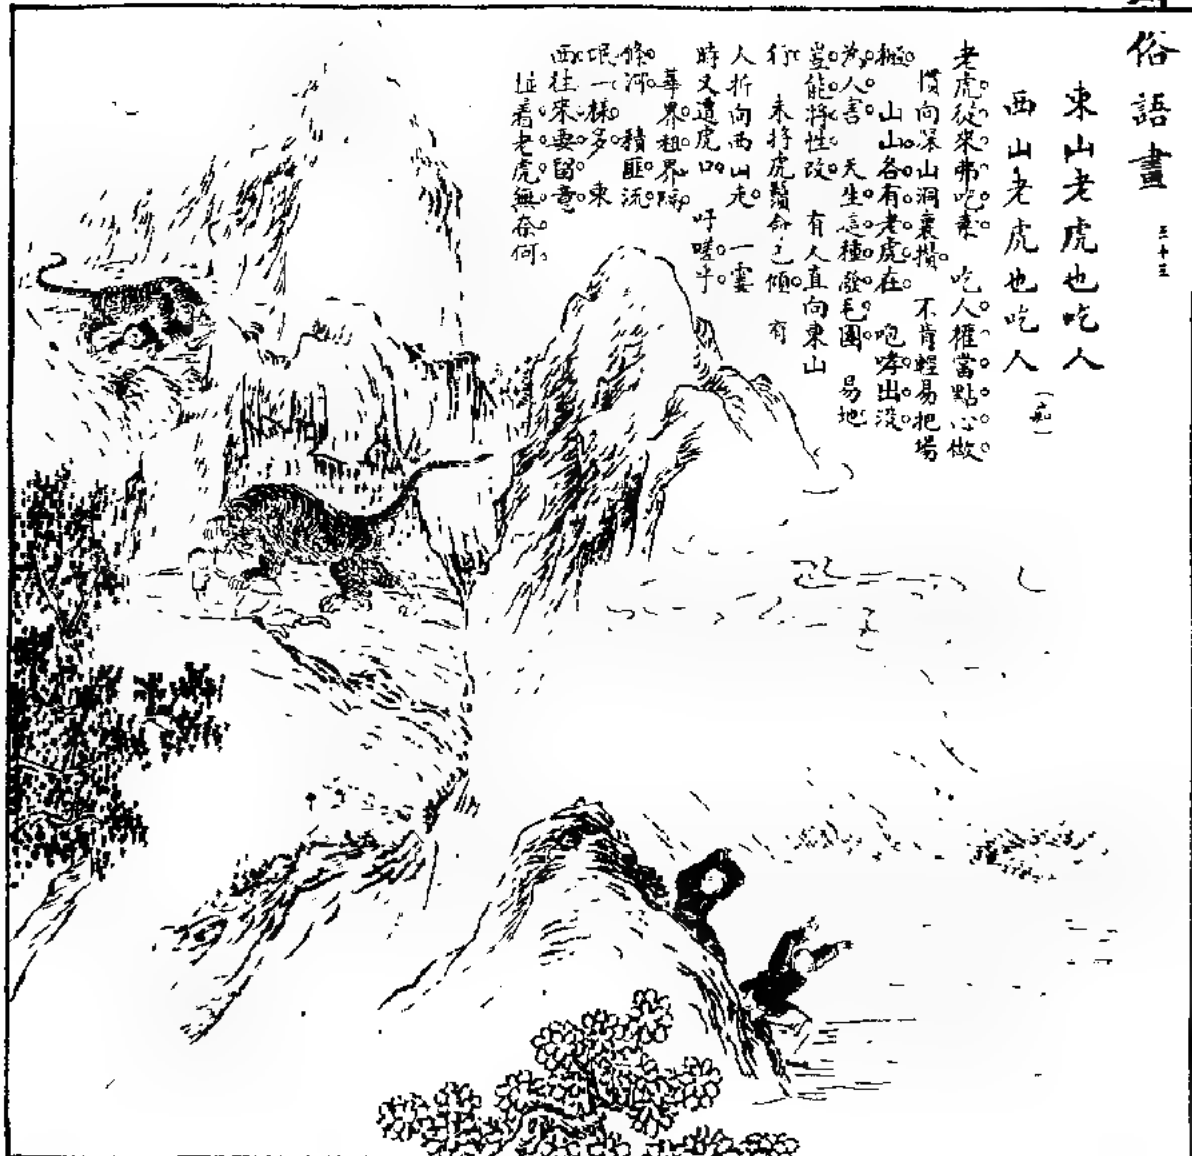 俗語畫
三十三
東山老虎也吃人
西山老虎也吃人
(嘉)
老虎從來弗吃素 吃人權當點心做
慣向深山洞裏攢 不肯輕易把場
山山各有老虎在 咆哮出沒
為人害 天生這種發毛團 易地
豈能將性改 有人直向東山
行 未捋虎鬚命已傾 有
人折向西山走 一霎
時又遭虎口 吁嗟乎
華界租界隔
條河 積匪流
氓一樣多 東
西往來要留意
碰着老虎無奈何